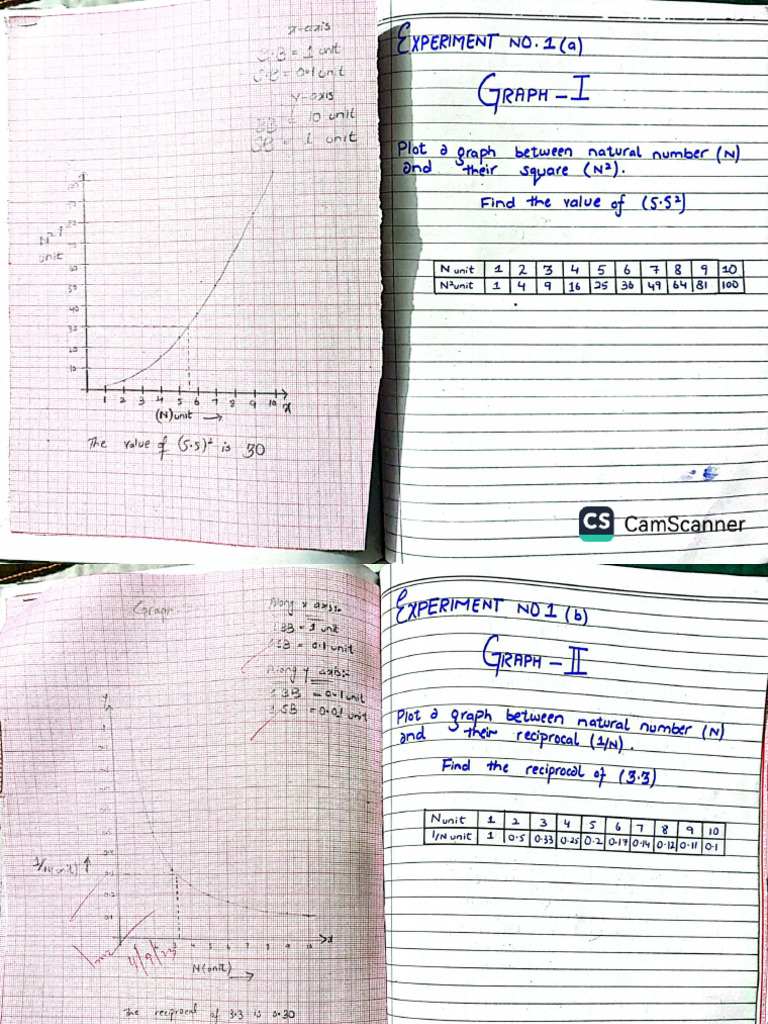 x-axis
B.B = 1 unit
S.B = 0.1 unit
y-axis
BB = 10 unit
SB = 1 unit
N²↑
unit
60
50
40
30
20
10
1 2 3 4 5 6 7 8 9 10 x
(N) unit →
The value of (5.5)² is 30
EXPERIMENT NO. 1 (a)
GRAPH - I
Plot a graph between natural number (N)
and their square (N²).
Find the value of (5.5²)
N unit 1 2 3 4 5 6 7 8 9 10
N² unit 1 4 9 16 25 36 49 64 81 100
CS CamScanner
Graph
Along x axis:-
1 BB = 1 unit
1 SB = 0.1 unit
Along y axis:-
1 BB = 0.1 unit
1 SB = 0.01 unit
y
1/N(unit) ↑
0.3
0.2
0.1
3 4 5 6 7 8 9 10 x
N(unit) →
The reciprocal of 3.3 is 0.30
EXPERIMENT NO 1 (b)
GRAPH - II
Plot a graph between natural number (N)
and their reciprocal (1/N).
Find the reciprocal of (3.3)
N unit 1 2 3 4 5 6 7 8 9 10
1/N unit 1 0.5 0.33 0.25 0.2 0.17 0.14 0.12 0.11 0.1